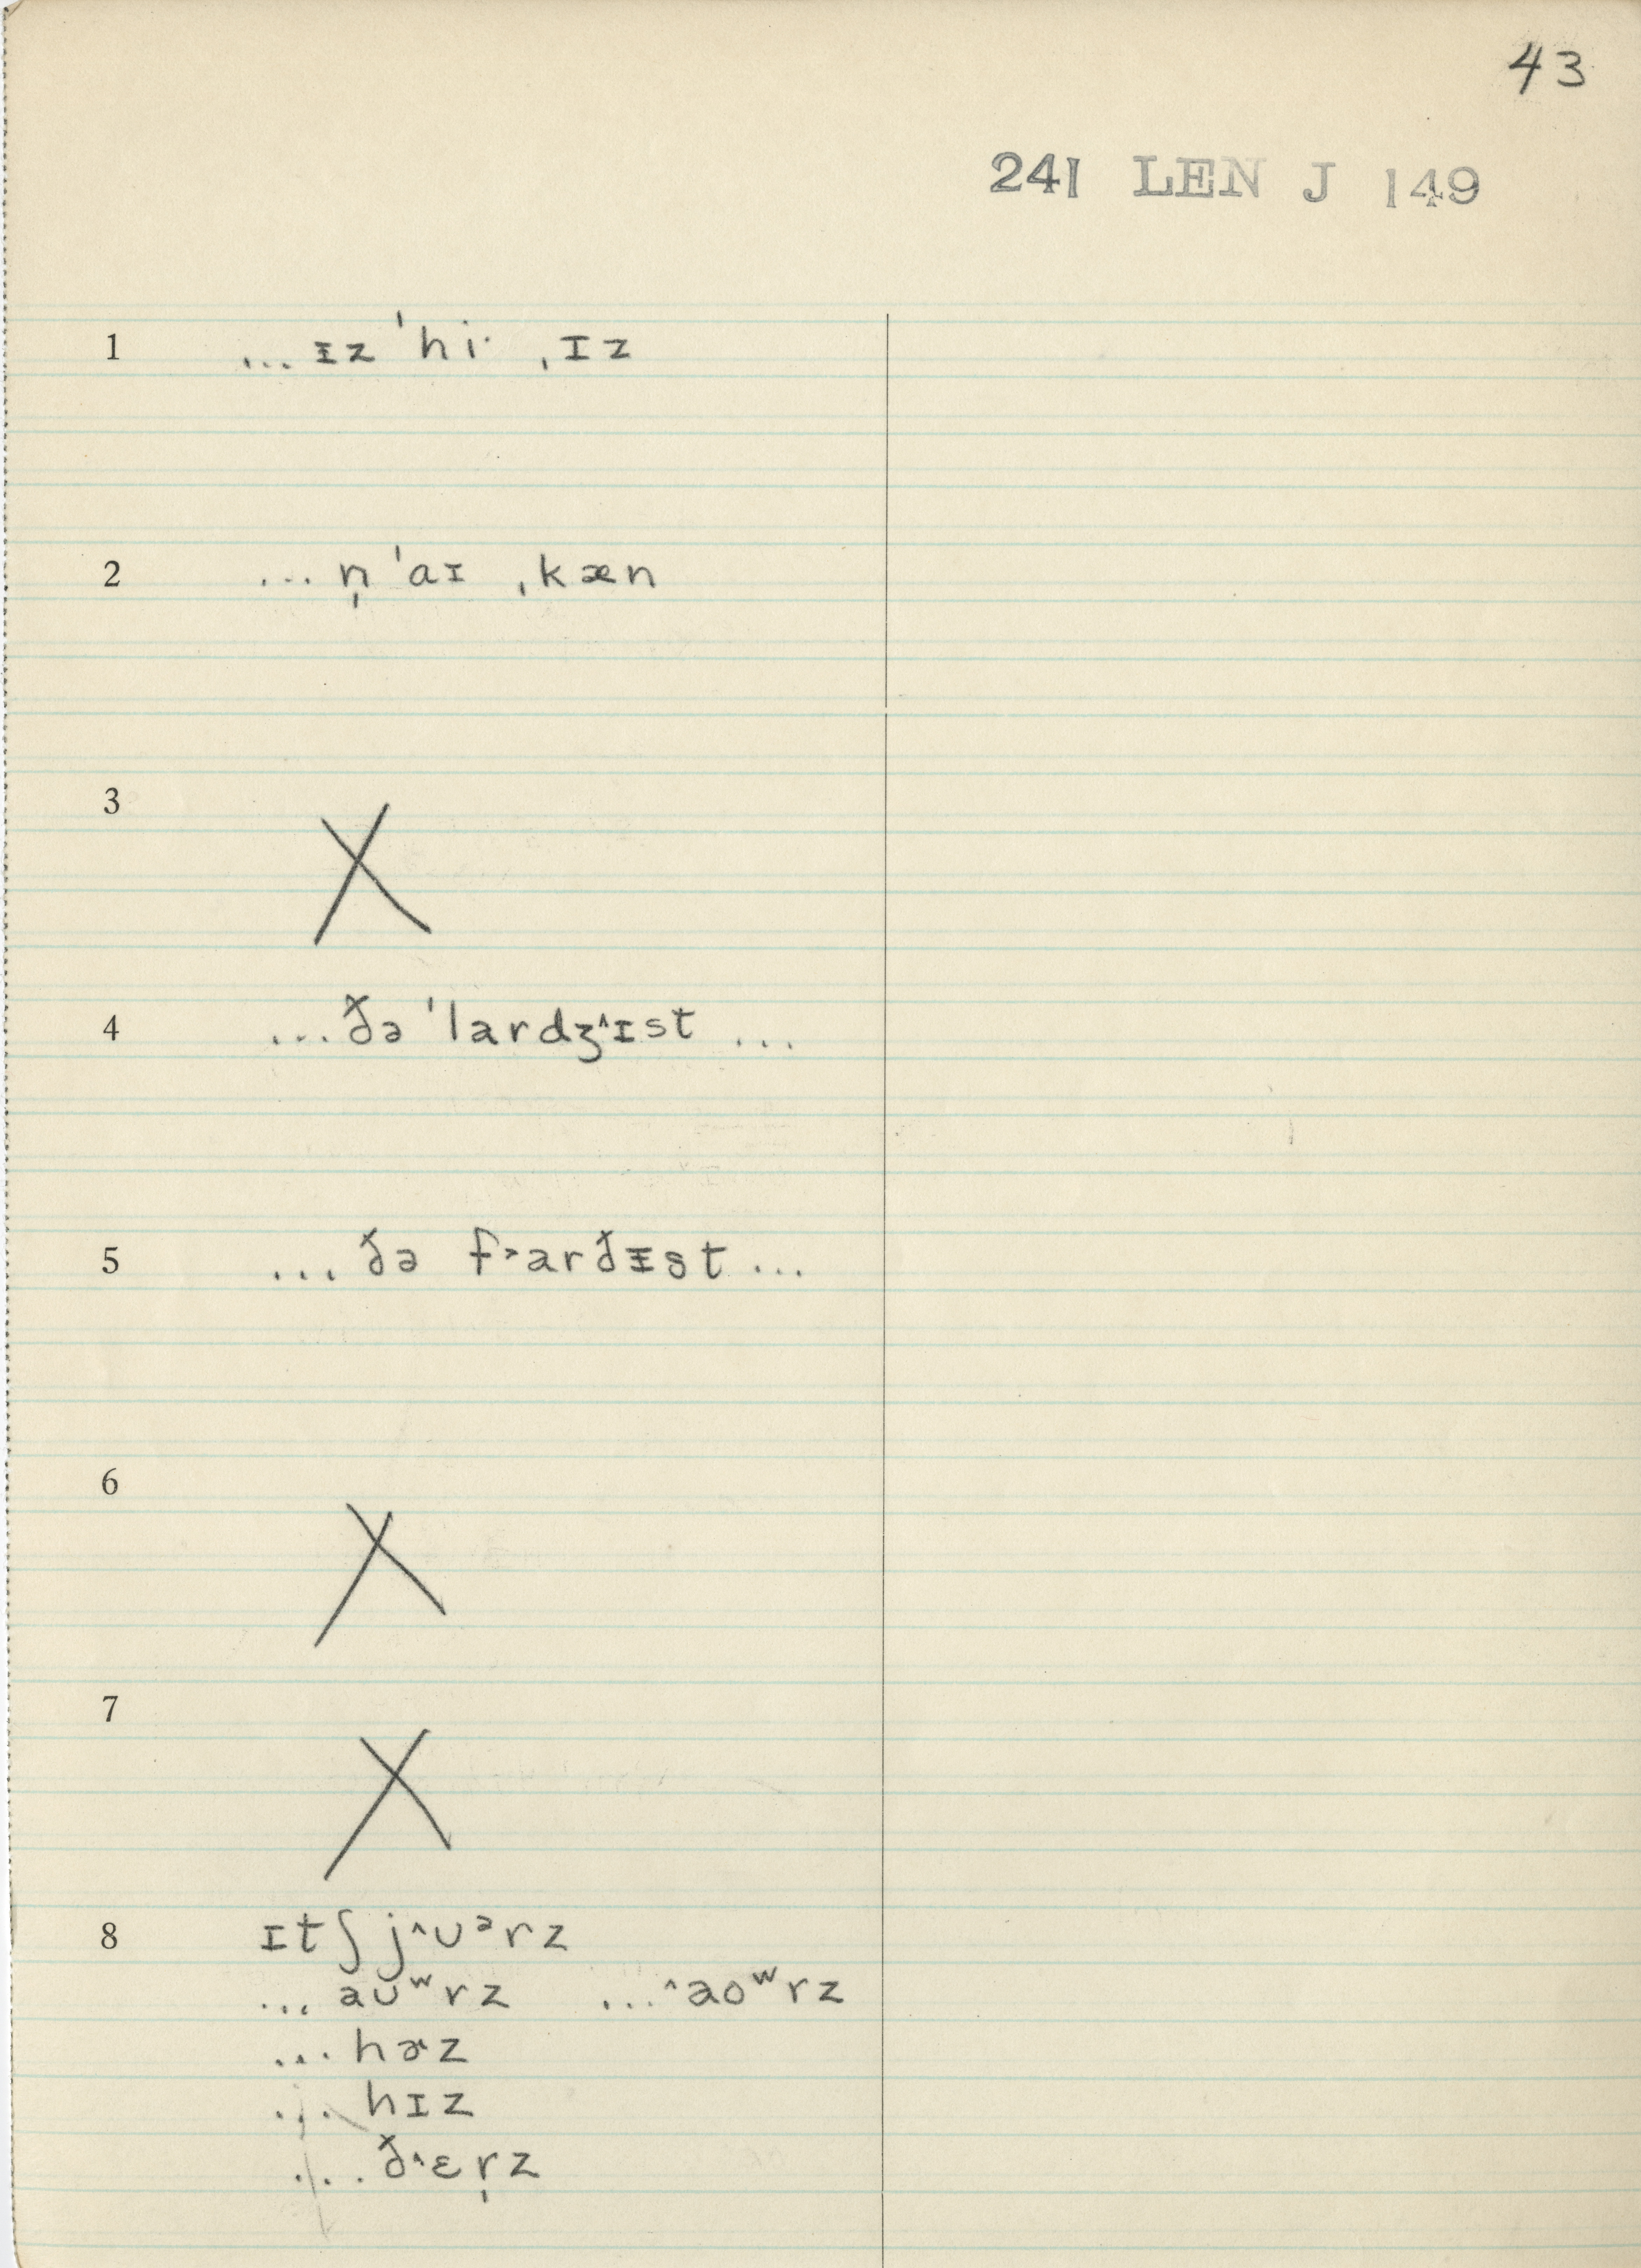 43
241 LEN J 149
1 ...ɪz ˈhi· ˌɪz
2 ...n̩ ˈaɪ ˌkæn
3 X
4 ...ðə ˈlardʒ˄ɪst ...
5 ...ðə f˃arðᵻst ...
6 X
7 X
8 ɪtʃ j˄ʊᵊrz
...aʊʷrz ...˄aoʷrz
...hɚz
...hɪz
...ð˄ɛr̩z